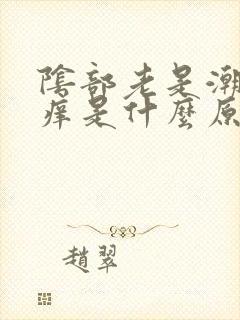 陰部老是潮
痒是什麼原
趙翠